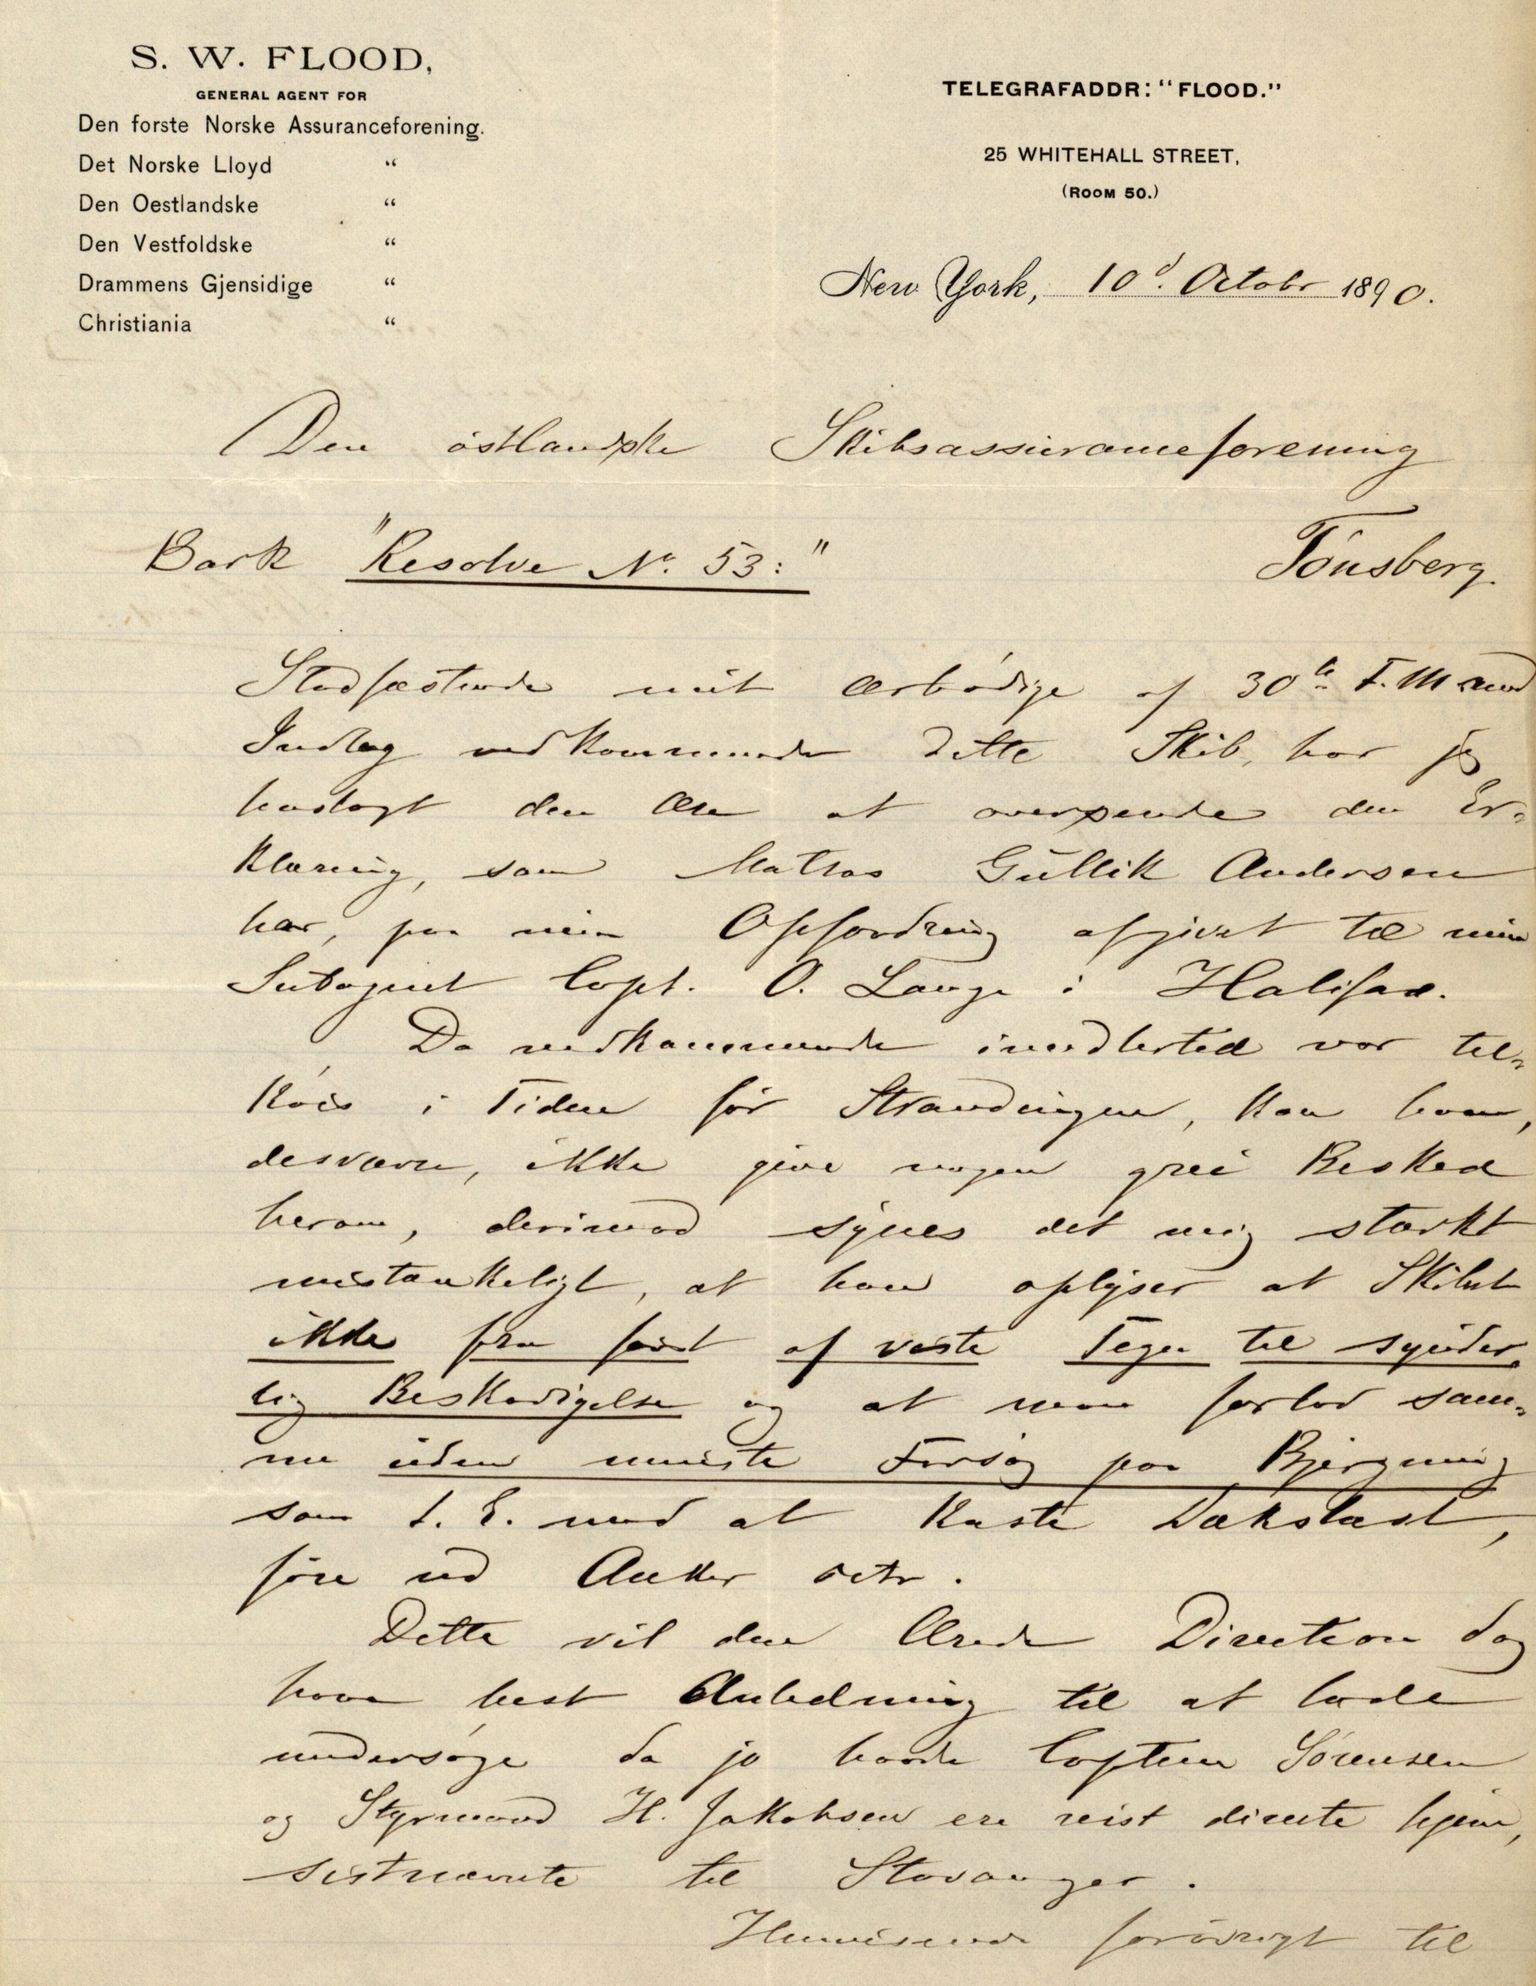 S. W. FLOOD,
GENERAL AGENT FOR
Den forste Norske Assuranceforening.
Det Norske Lloyd “
Den Oestlandske “
Den Vestfoldske “
Drammens Gjensidige “
Christiania “
TELEGRAFADDR: “FLOOD.”
25 WHITEHALL STREET,
(ROOM 50.)
New York, 10d. Octobr 1890.
Den östlandske Skibsassuranceforening
Bark "Resolve No. 53:"
Tönsberg.
Stadfæstende mit ærbödige af 30te F. M. med
Indlæg vedkommende dette Skib, har jeg
herlagt den Ære at oversende den Er-
klæring, som Matros Güllik Andersen
har, paa min Opfordring afgivet til min
Subagent Capt. O. Lange i Halifax.
Da vedkommende imidlertid var til-
köis i Tiden för Strandingen, kan han,
desværre, ikke give nogen grei Besked
herom, derimod synes det mig stærkt
mistænkeligt, at han oplyser at Skibet
ikke fra först af viste Tegn til synder-
lig Beskadigelse og at man forlod sam-
me üden mindste Forsög paa Bjergning
som f. E. med at kaste Dækslast,
före ud Anker etc.
Dette vil den Ærede Direction dog
have best Anledning til at lade
undersöge da jo baade Captein Sörensen
og Styrmand H. Jakobsen ere reist directe hjem,
sistnævnte til Stavanger.
Henvisende forövrigt til